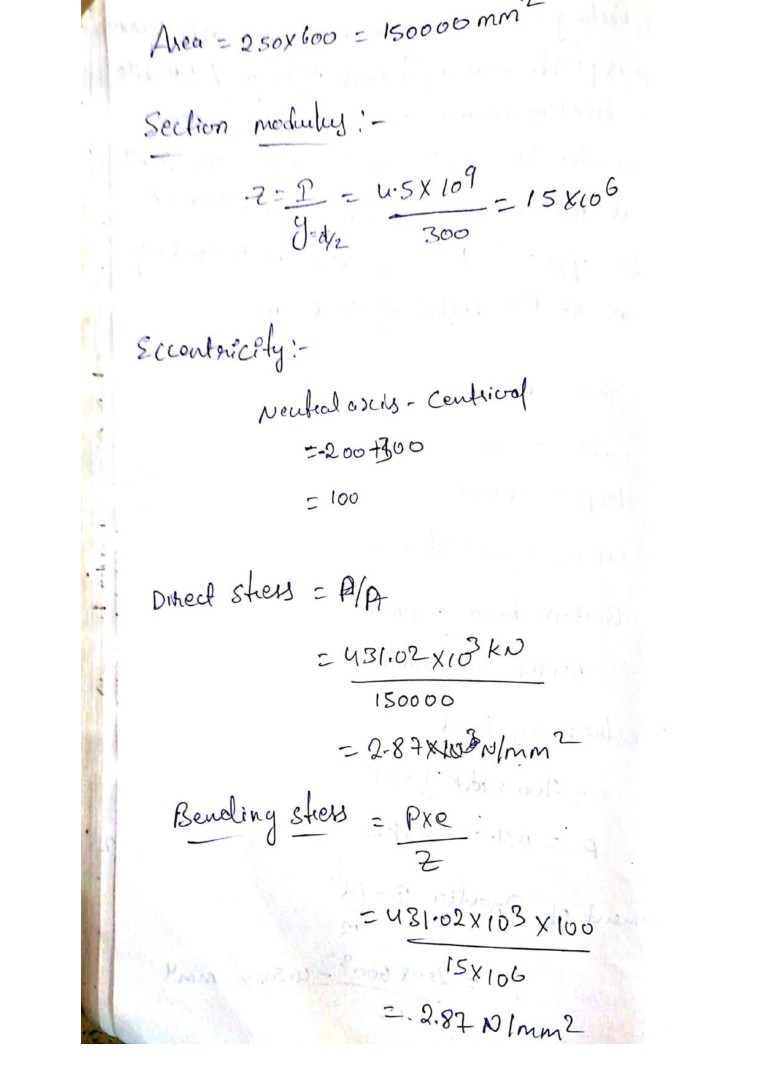 Area = 250x600 = 150000 mm²
Section modulus :-
Z = I / y=d/2 = 4.5 x 10⁹ / 300 = 15 x 10⁶
Eccentricity :-
Neutral axis - Centriod
= -200 + 300
= 100
Direct stress = P/A
= 431.02 x 10³ kN / 150000
= 2.87 N/mm²
Bending stress = Pxe / Z
= 431.02 x 10³ x 100 / 15 x 106
= 2.87 N/mm²